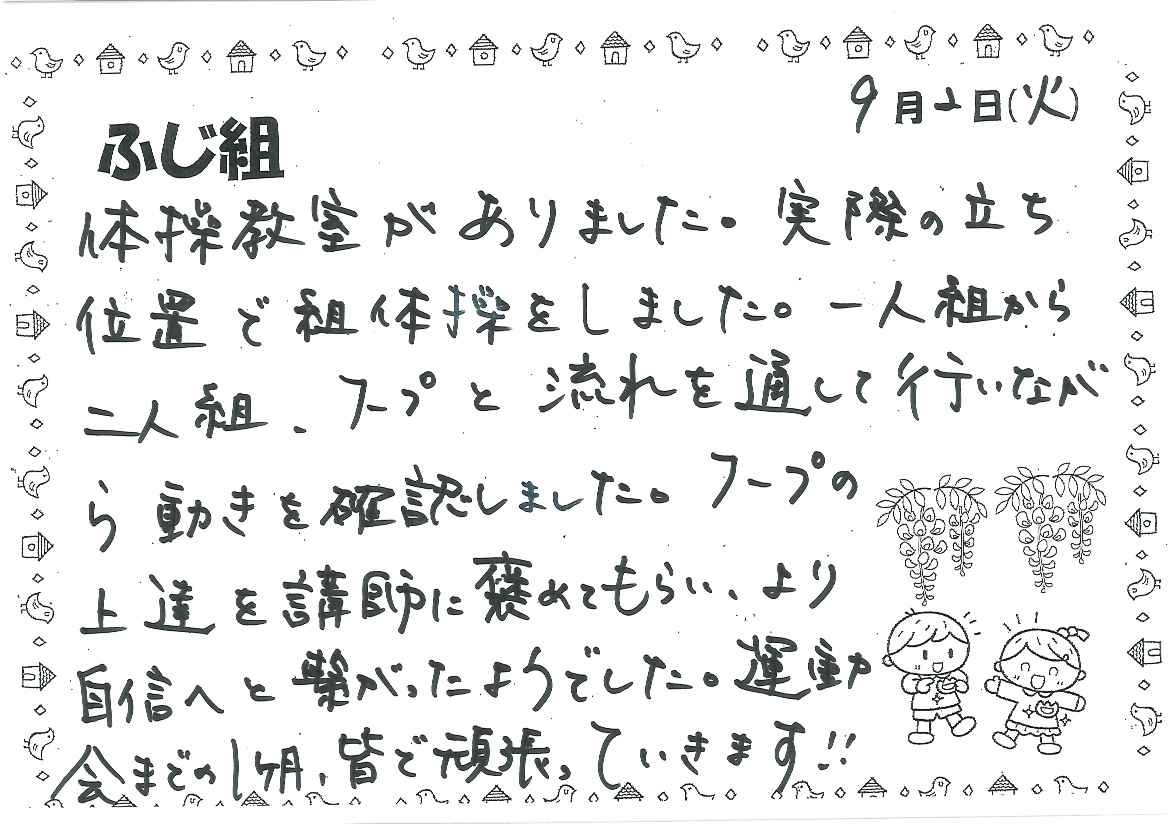 9月2日(火)
ふじ組
体操教室がありました。実際の立ち
位置で組体操をしました。一人組から
二人組、フープと流れを通して行いなが
ら動きを確認しました。フープの
上達を講師に褒めてもらい、より
自信へと繋がったようでした。運動
会までの1ヶ月、皆で頑張っていきます!!